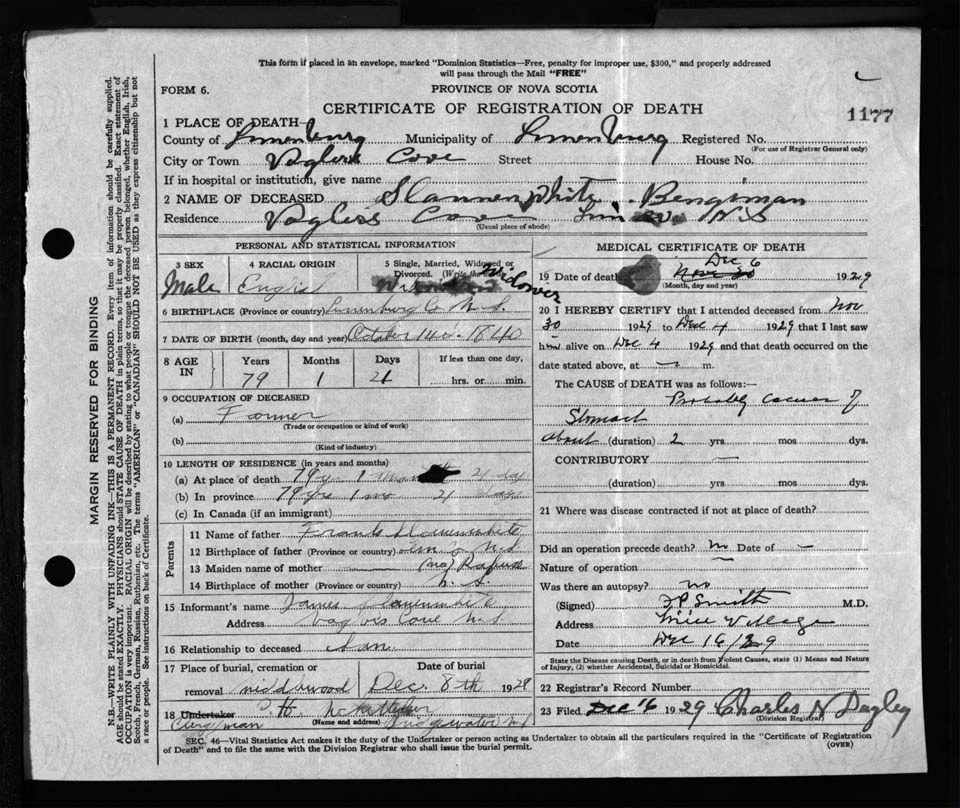 This form if placed in an envelope, marked "Dominion Statistics—Free, penalty for improper use, $300," and properly addressed
will pass through the Mail "FREE"
FORM 6.
PROVINCE OF NOVA SCOTIA
CERTIFICATE OF REGISTRATION OF DEATH
1177
1 PLACE OF DEATH—
County of Lunenburg Municipality of Lunenburg Registered No.
(For use of Registrar General only)
City or Town Voglers Cove Street House No.
If in hospital or institution, give name
2 NAME OF DECEASED Slauenwhite Bengiman
Residence Voglers Cove Lun Co. N.S
(Usual place of abode)
PERSONAL AND STATISTICAL INFORMATION
3 SEX
Male
4 RACIAL ORIGIN
5 Single, Married, Widowed or
Divorced. (Write the
Widower
6 BIRTHPLACE (Province or country) Lunenburg Co N.S.
7 DATE OF BIRTH (month, day and year) October 1840
8 AGE IN
Years Months Days If less than one day,
79 1 21 hrs. or min.
9 OCCUPATION OF DECEASED
(a) Farmer
(Trade or occupation or kind of work)
(b)
(Kind of industry)
10 LENGTH OF RESIDENCE (in years and months)
(a) At place of death 79 yr 1 21 day
(b) In province 79 yrs 1 mo 21 days
(c) In Canada (if an immigrant)
Parents
11 Name of father Frank Slauenwhite
12 Birthplace of father (Province or country) N.S.
13 Maiden name of mother
14 Birthplace of mother (Province or country) N.S.
15 Informant's name James Slauenwhite
Address Voglers Cove N.S.
16 Relationship to deceased Son
17 Place of burial, cremation or
removal Middlewood
Date of burial
Dec. 8th 1929
18 Undertaker H.
Clergyman (Name and address) Bridgewater N.S
MEDICAL CERTIFICATE OF DEATH
Dec 6
19 Date of death Nov 30 1929
(Month, day and year)
20 I HEREBY CERTIFY that I attended deceased from Nov
30 1929 to Dec 4 1929 that I last saw
him alive on Dec 4 1929 and that death occurred on the
date stated above, at — m.
The CAUSE of DEATH was as follows:—
Probably cancer of
Stomach
about (duration) 2 yrs mos dys.
CONTRIBUTORY —
(duration) yrs mos dys.
21 Where was disease contracted if not at place of death?
Did an operation precede death? no Date of —
Nature of operation
Was there an autopsy? no
(Signed) Smith M.D.
Address Mill Village
Date Dec 16/29
State the Disease causing Death, or in death from Violent Causes, state (1) Means and Nature
of Injury, (2) whether Accidental, Suicidal or Homicidal.
22 Registrar's Record Number
23 Filed Dec 16 1929 Charles N Dagley
(Division Registrar)
SEC. 46—Vital Statistics Act makes it the duty of the Undertaker or person acting as Undertaker to obtain all the particulars required in the "Certificate of Registration
of Death" and to file the same with the Division Registrar who shall issue the burial permit.
(OVER)
MARGIN RESERVED FOR BINDING
N.B.—WRITE PLAINLY WITH UNFADING INK—THIS IS A PERMANENT RECORD. Every item of information should be carefully supplied.
AGE should be stated EXACTLY. PHYSICIANS should STATE CAUSE OF DEATH in plain terms, so that it may be properly classified. Exact statement of
OCCUPATION is very important. RACIAL ORIGIN will be described by stating to what people or tongue the deceased person belonged, whether English, Irish,
Scotch, French, German, Russian, Ruthenian, etc. The terms "AMERICAN" or "CANADIAN" SHOULD NOT BE USED as they express citizenship but not
a race or people. See instructions on back of Certificate.